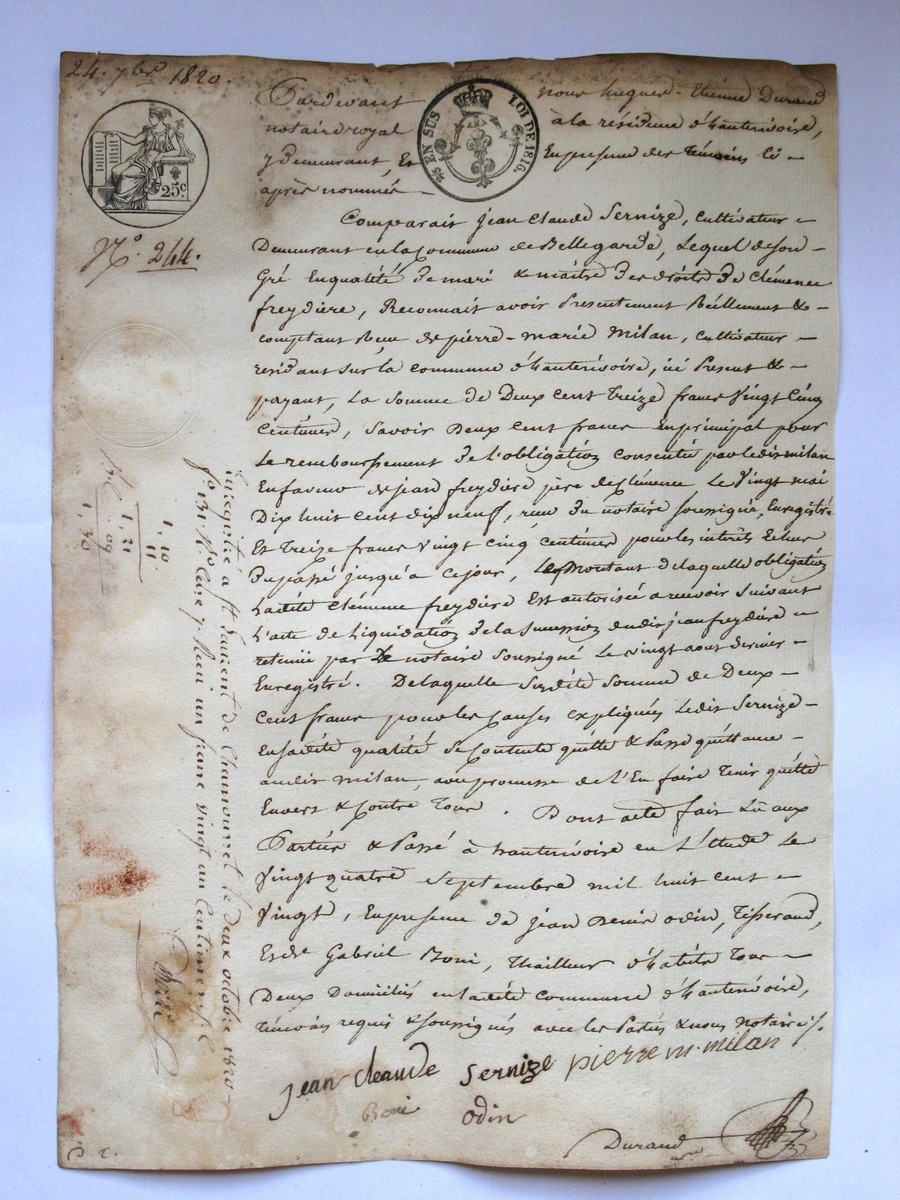 24. 7bre 1820.
25c
EN SUS LOI DE 1816.
No. 244.
Pardevant nous hugues-Etienne Durand
notaire royal à la résidence d'hauterivoire,
y demeurant, Et En presence des témoins ci-
après nommés
Comparait Jean Claude Sernize, cultivateur
Demeurant en la Commune de Bellegarde, Lequel de son
Gré En qualité de mari & maitre des droits de Clémence
freydière, Reconnait avoir Presentement Réellement &
comptant Reçu de pierre-marie Milan, cultivateur
residant sur la commune d'hauterivoire, ici Present &
payant, La somme de Deux cent treize francs Vingt Cinq
Centimes, savoir Deux cent francs En principal pour
Le remboursement de l'obligation consentie par ledit milan
En faveur de jean freydière père de Clémence Le Vingt mai
Dix huit cent dix neuf, reçue du notaire soussigné, Enregistré
Et treize francs Vingt Cinq centimes pour les interets Echus
Du passé jusqu'à ce jour, Le Montant de laquelle obligation
Ladite Clémence freydière Est autorisée a recevoir suivant
L'acte de liquidation de la succession dudit jean freydière
retenue par Le notaire soussigné Le Vingt aout dernier
Enregistré. De laquelle susdite somme de Deux
Cent francs pour les causes expliquées Ledit Sernize
En sadite qualité se contente quitte & Passe quittance
audit milan, avec promesse de l'En faire tenir quitte
Envers & contre Tous. Dont acte fait Lû aux
Parties & Passé à hauterivoire en L'Etude Le
Vingt quatre septembre mil huit cent
Vingt, En presence de Jean Denis Odin, Tisserand,
Et de Gabriel Boni, thailleur d'habits Tous
Deux Domiciliés en ladite commune d'hauterivoire,
témoins requis & soussignés avec les Parties & nous notaire
jean cleaude Sernize pierre m. milan
Boni odin
Durand
Enregistré a St Laurent de Chamousset le deux octobre 1820
fo 131 Ro Case 7 Reçu un franc vingt un Centimes
1, 10
11
1, 21
09
1, 30